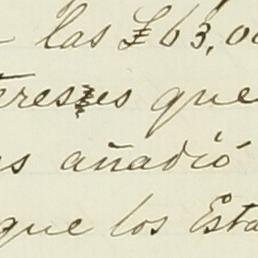 las £63,00
tereses que
s añadió
que los Esta